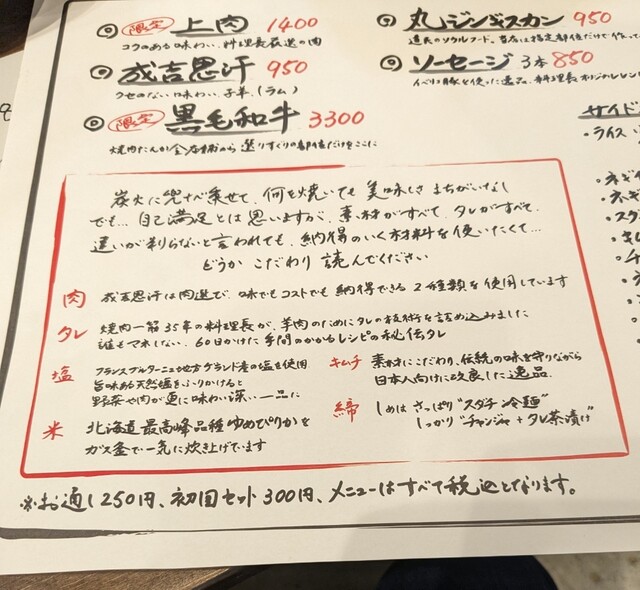 ◎ 限定 上肉 1400
コクのある味わい、料理長厳選の肉
◎ 成吉思汗 950
クセのない味わい、子羊(ラム)
◎ 限定 黒毛和牛 3300
焼肉たんか全店舗から選りすぐりの部位だけをここに
◎ 丸ジンギスカン 950
道民のソウルフード。当店は指定部位だけで作って
◎ ソーセージ 3本 850
イベリコ豚を使った逸品、料理長オリジナルレシ
サイド
・ライス
・ネギ
・スタ
・キム
・チ
炭火に兜ナベ乗せて、何を焼いても美味しさまちがいなし
でも…自己満足とは思いますが、素材がすべて、タレがすべて、
違いが判らないと言われても、納得のいく材料を使いたくて…
どうか こだわり 読んでください
肉 成吉思汗は肉選びで、味でもコストでも納得できる2種類を使用しています
タレ 焼肉一筋35年の料理長が、羊肉のためにタレの技術を詰め込みました
誰もマネしない、60日かけた手間のかかるレシピの秘伝タレ
塩 フランスブルターニュ地方ゲランド産の塩を使用
旨味ある天然塩をふりかけると
野菜や肉が更に味わい深い一品に
キムチ 素材にこだわり、伝統の味を守りながら
日本人向けに改良した逸品
米 北海道最高峰品種ゆめぴりかを
ガス釜で一気に炊き上げています
締 しめは さっぱり"スダチ冷麺"
しっかり"チャンジャ+タレ茶漬け"
※お通し250円、初回セット300円、メニューはすべて税込となります。